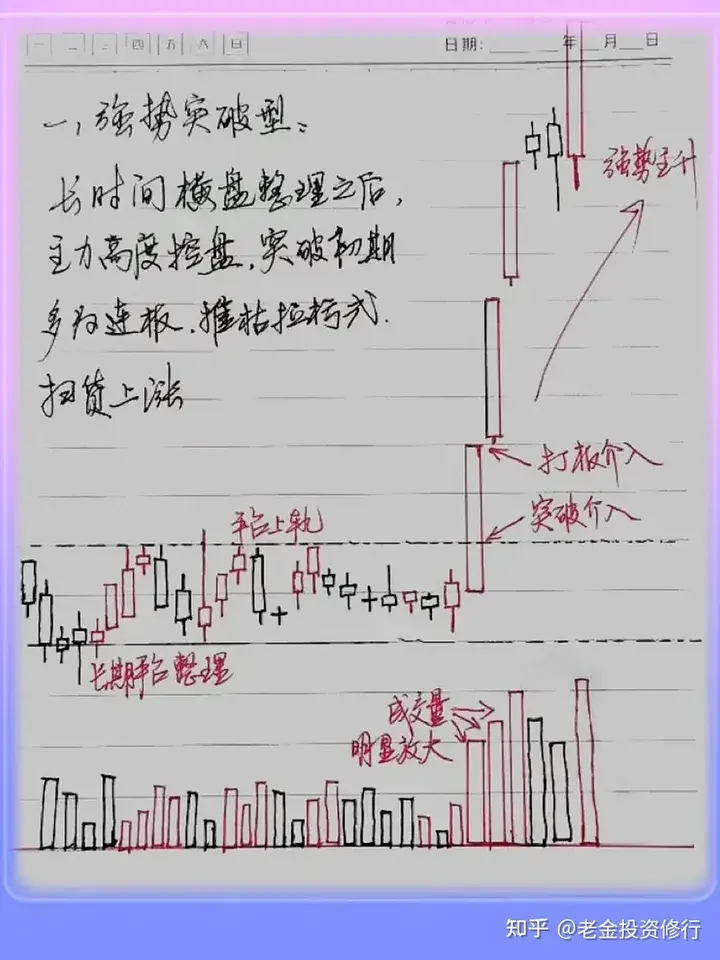 一 二 三 四 五 六 日
日期: 年 月 日
一,强势突破型:
长时间横盘整理之后,
主力高度控盘,突破初期
多为连板,摧枯拉朽式
扫货上涨
强势主升
打板介入
突破介入
平台上轨
长期平台整理
成交量
明显放大
知乎 @老金投资修行